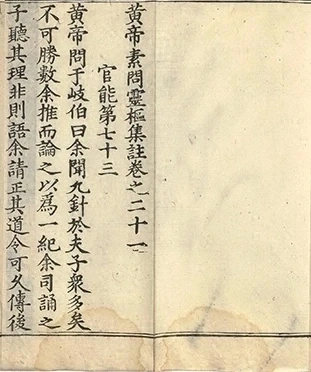 黃帝素問靈樞集註卷之二十一
官能第七十三
黃帝問于岐伯曰余聞九針於夫子衆多矣
不可勝數余推而論之以爲一紀余司誦之
子聽其理非則語余請正其道令可久傳後